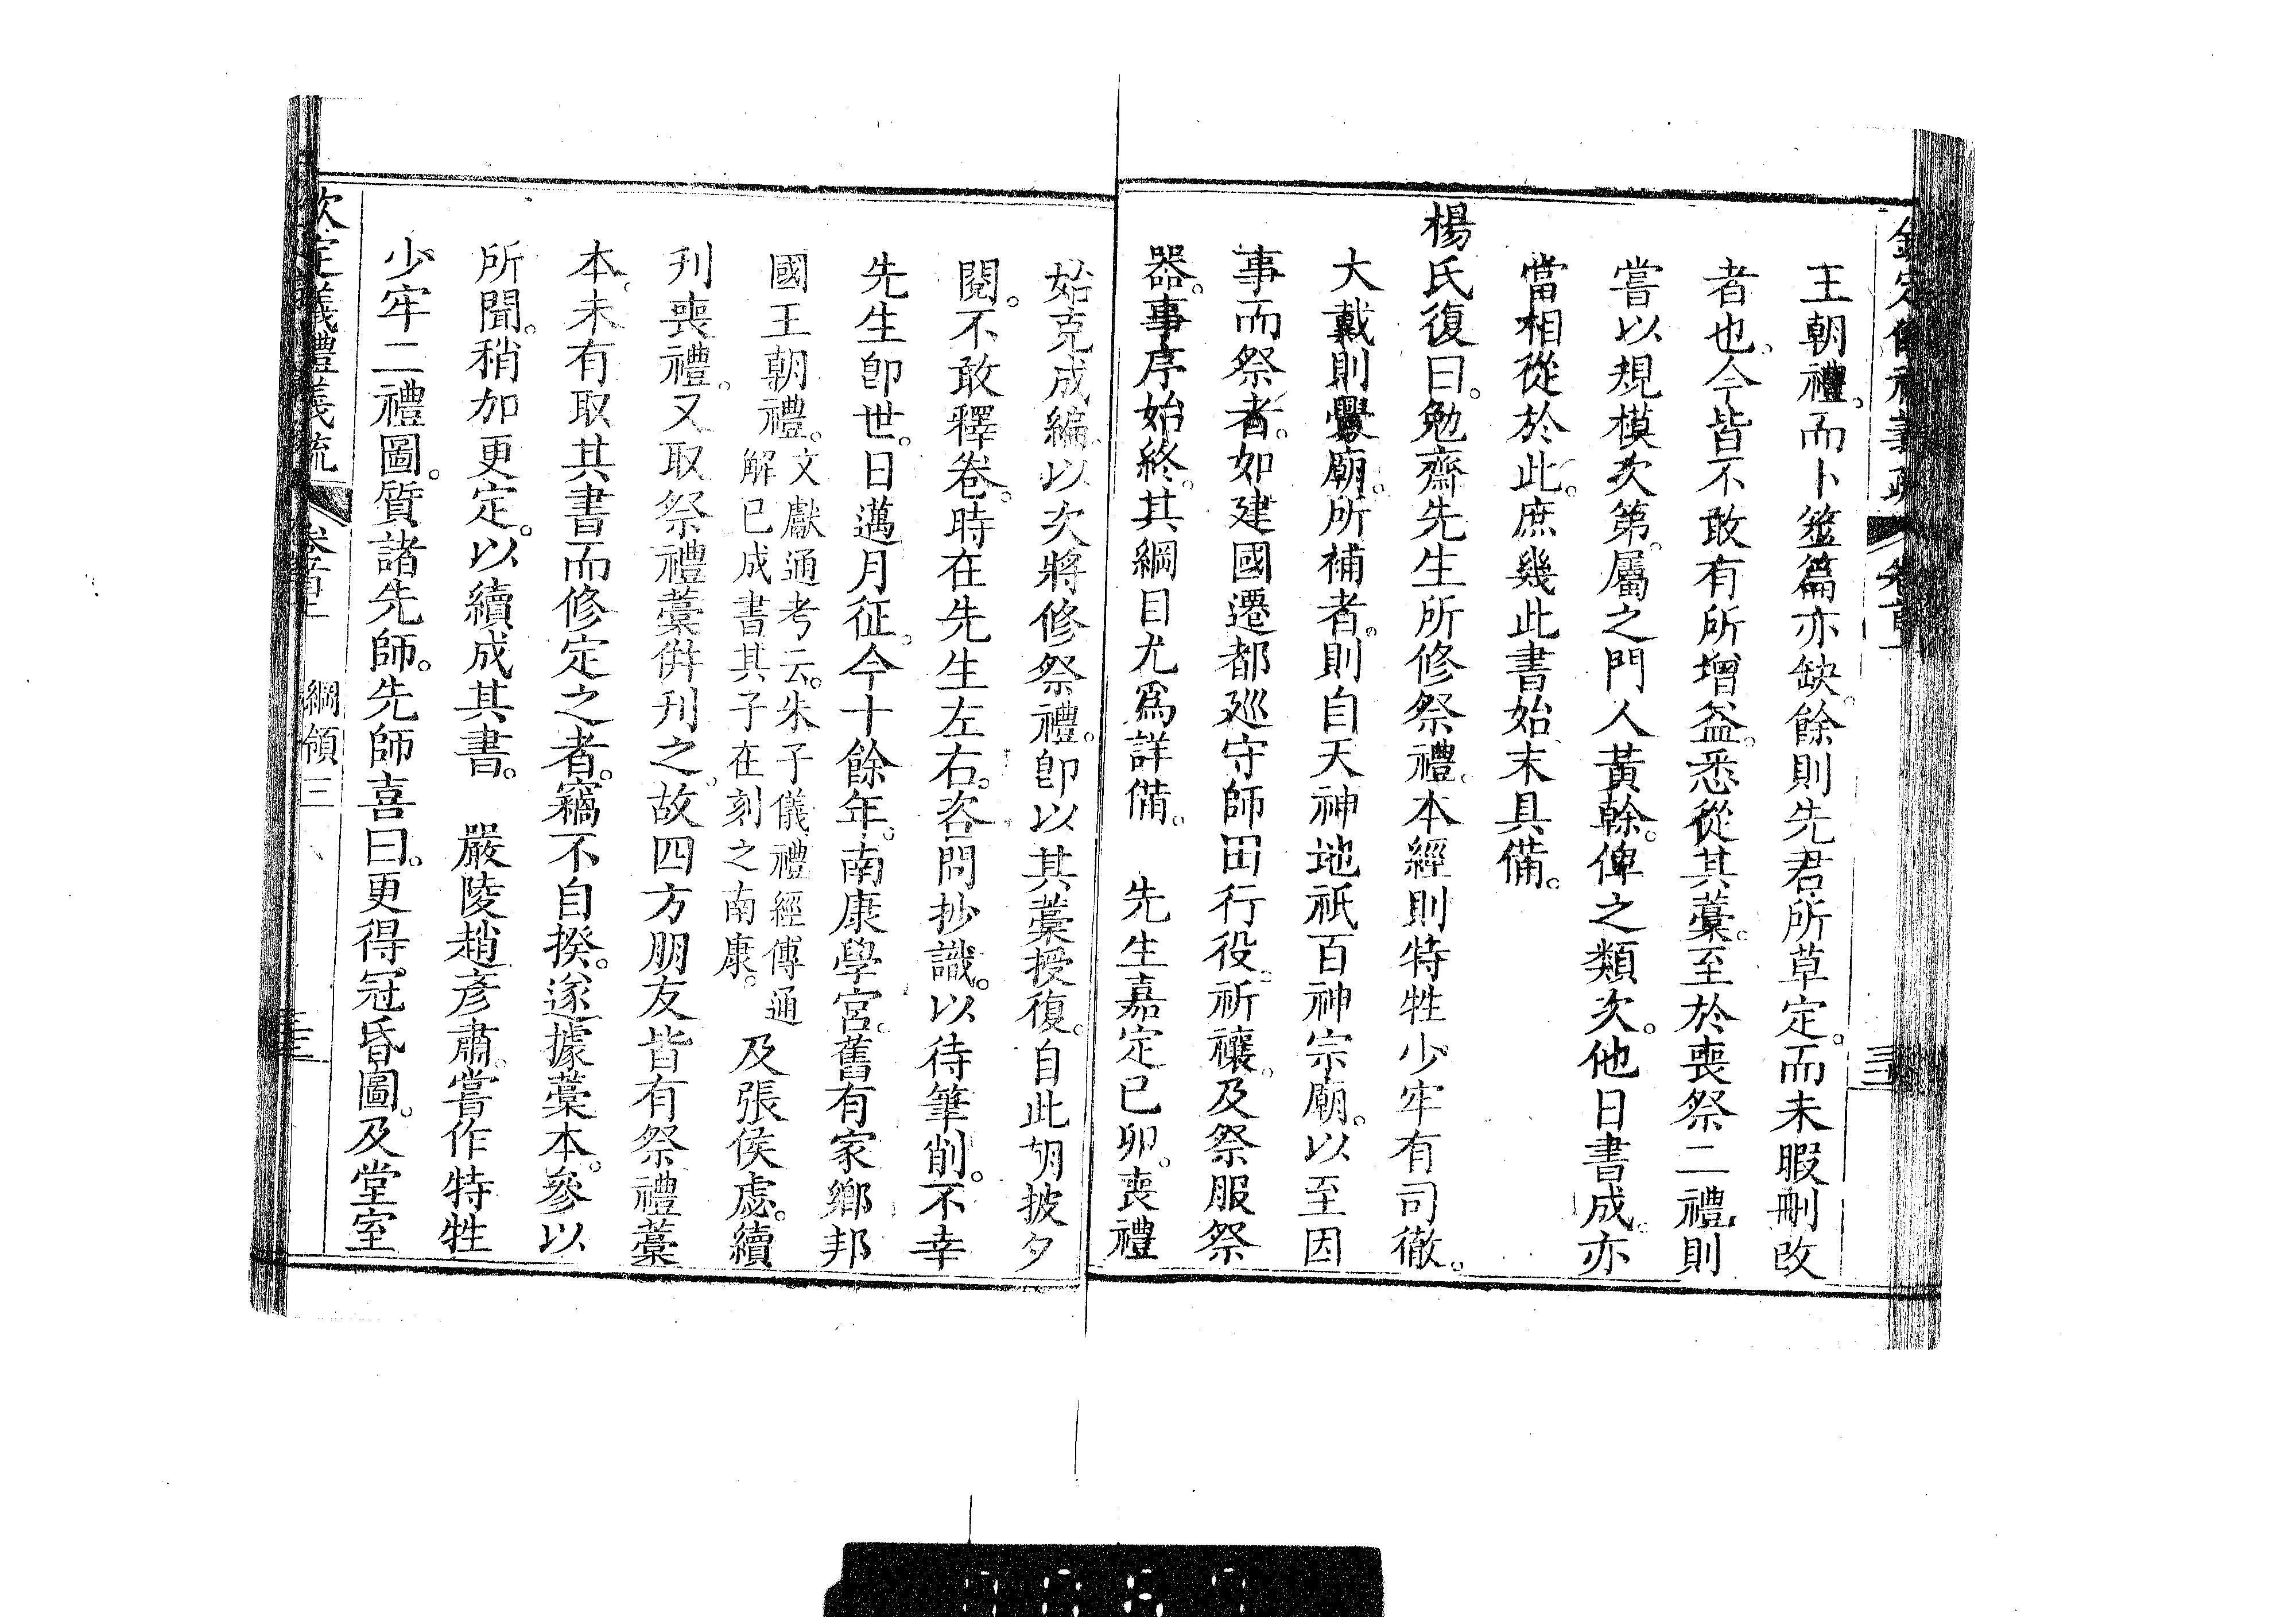 王朝禮。而卜筮篇亦缺。餘則先君所草定。而未暇刪改
者也。今皆不敢有所增益。悉從其藁。至於喪祭二禮。則
嘗以規模次第。屬之門人黃榦。俾之類次。他日書成。亦
當相從於此。庶幾此書始末具備。
楊氏復曰。勉齋先生所修祭禮。本經則特牲少牢有司徹。
大戴則釁廟。所補者。則自天神地祇百神宗廟。以至因
事而祭者。如建國遷都廵守師田行役。祈禳。及祭服祭
器。事序始終。其綱目尤爲詳備。 先生嘉定已卯。喪禮
始克成編。以次將修祭禮。卽以其藁授復。自此朝披夕
閱。不敢釋卷。時在先生左右。咨問抄識。以待筆削。不幸
先生卽世。日邁月征。今十餘年。南康學宮。舊有家鄉邦
國王朝禮。文獻通考云。朱子儀禮經傳通
解已成書其子在刻之南康。及張侯虙。續
刋喪禮。又取祭禮藁倂刋之。故四方朋友皆有祭禮藁
本。未有取其書而修定之者。竊不自揆。遂據藁本。參以
所聞。稍加更定。以續成其書。 嚴陵趙彥肅。嘗作特牲
少牢二禮圖。質諸先師。先師喜曰。更得冠昏圖。及堂室
欽定儀禮義疏 卷首上 綱領三